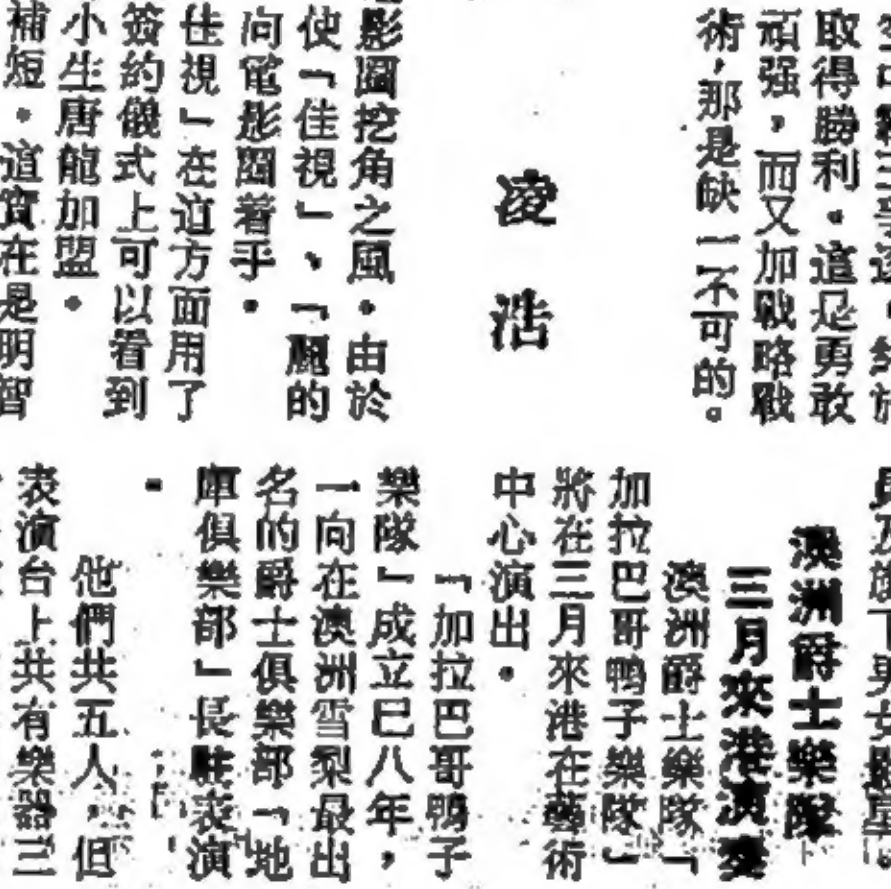 取得勝利。這是勇敢
頑强，而又加戰略戰
術，那是缺一不可的。
凌浩
影圈挖角之風。由於
使「佳視」、「麗的
向電影圈着手。
佳視」在這方面用了
簽約儀式上可以看到
小生唐龍加盟。
補短。這實在是明智
澳洲爵士樂隊
三月來港演奏
澳洲爵士樂隊「
加拉巴哥鴨子樂隊」
將在三月來港在藝術
中心演出。
「加拉巴哥鴨子
樂隊」成立已八年，
一向在澳洲雪梨最出
名的爵士俱樂部「地
庫俱樂部」長駐表演
。
他們共五人，但
表演台上共有樂器三